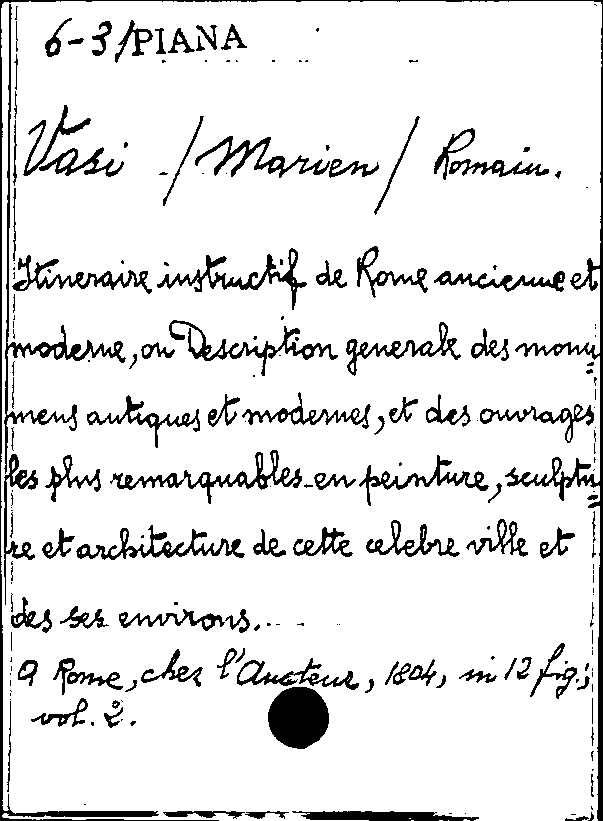 6-3/PIANA
Vasi /Marien/ Romain.
Itineraire instructif de Rome ancienne et
moderne, ou Description generale des monu=
mens antiques et modernes, et des ouvrages
les plus remarquables en peinture, sculptu=
re et architecture de cette celebre ville et
des ses environs.
A Rome, chez l'Aucteur, 1804, in 12 fig.;
vol. 2.